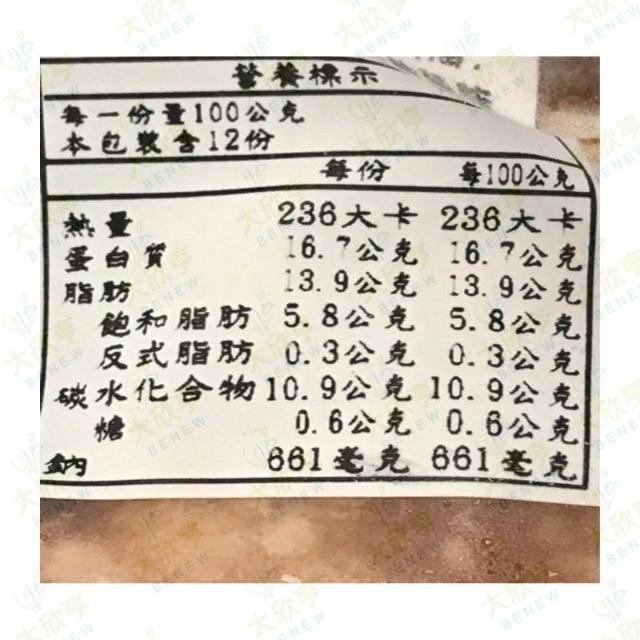 營養標示
每一份量100公克
本包裝含12份
每份 每100公克
熱量 236大卡 236大卡
蛋白質 16.7公克 16.7公克
脂肪 13.9公克 13.9公克
飽和脂肪 5.8公克 5.8公克
反式脂肪 0.3公克 0.3公克
碳水化合物 10.9公克 10.9公克
糖 0.6公克 0.6公克
鈉 661毫克 661毫克
大欣亨
BENEW